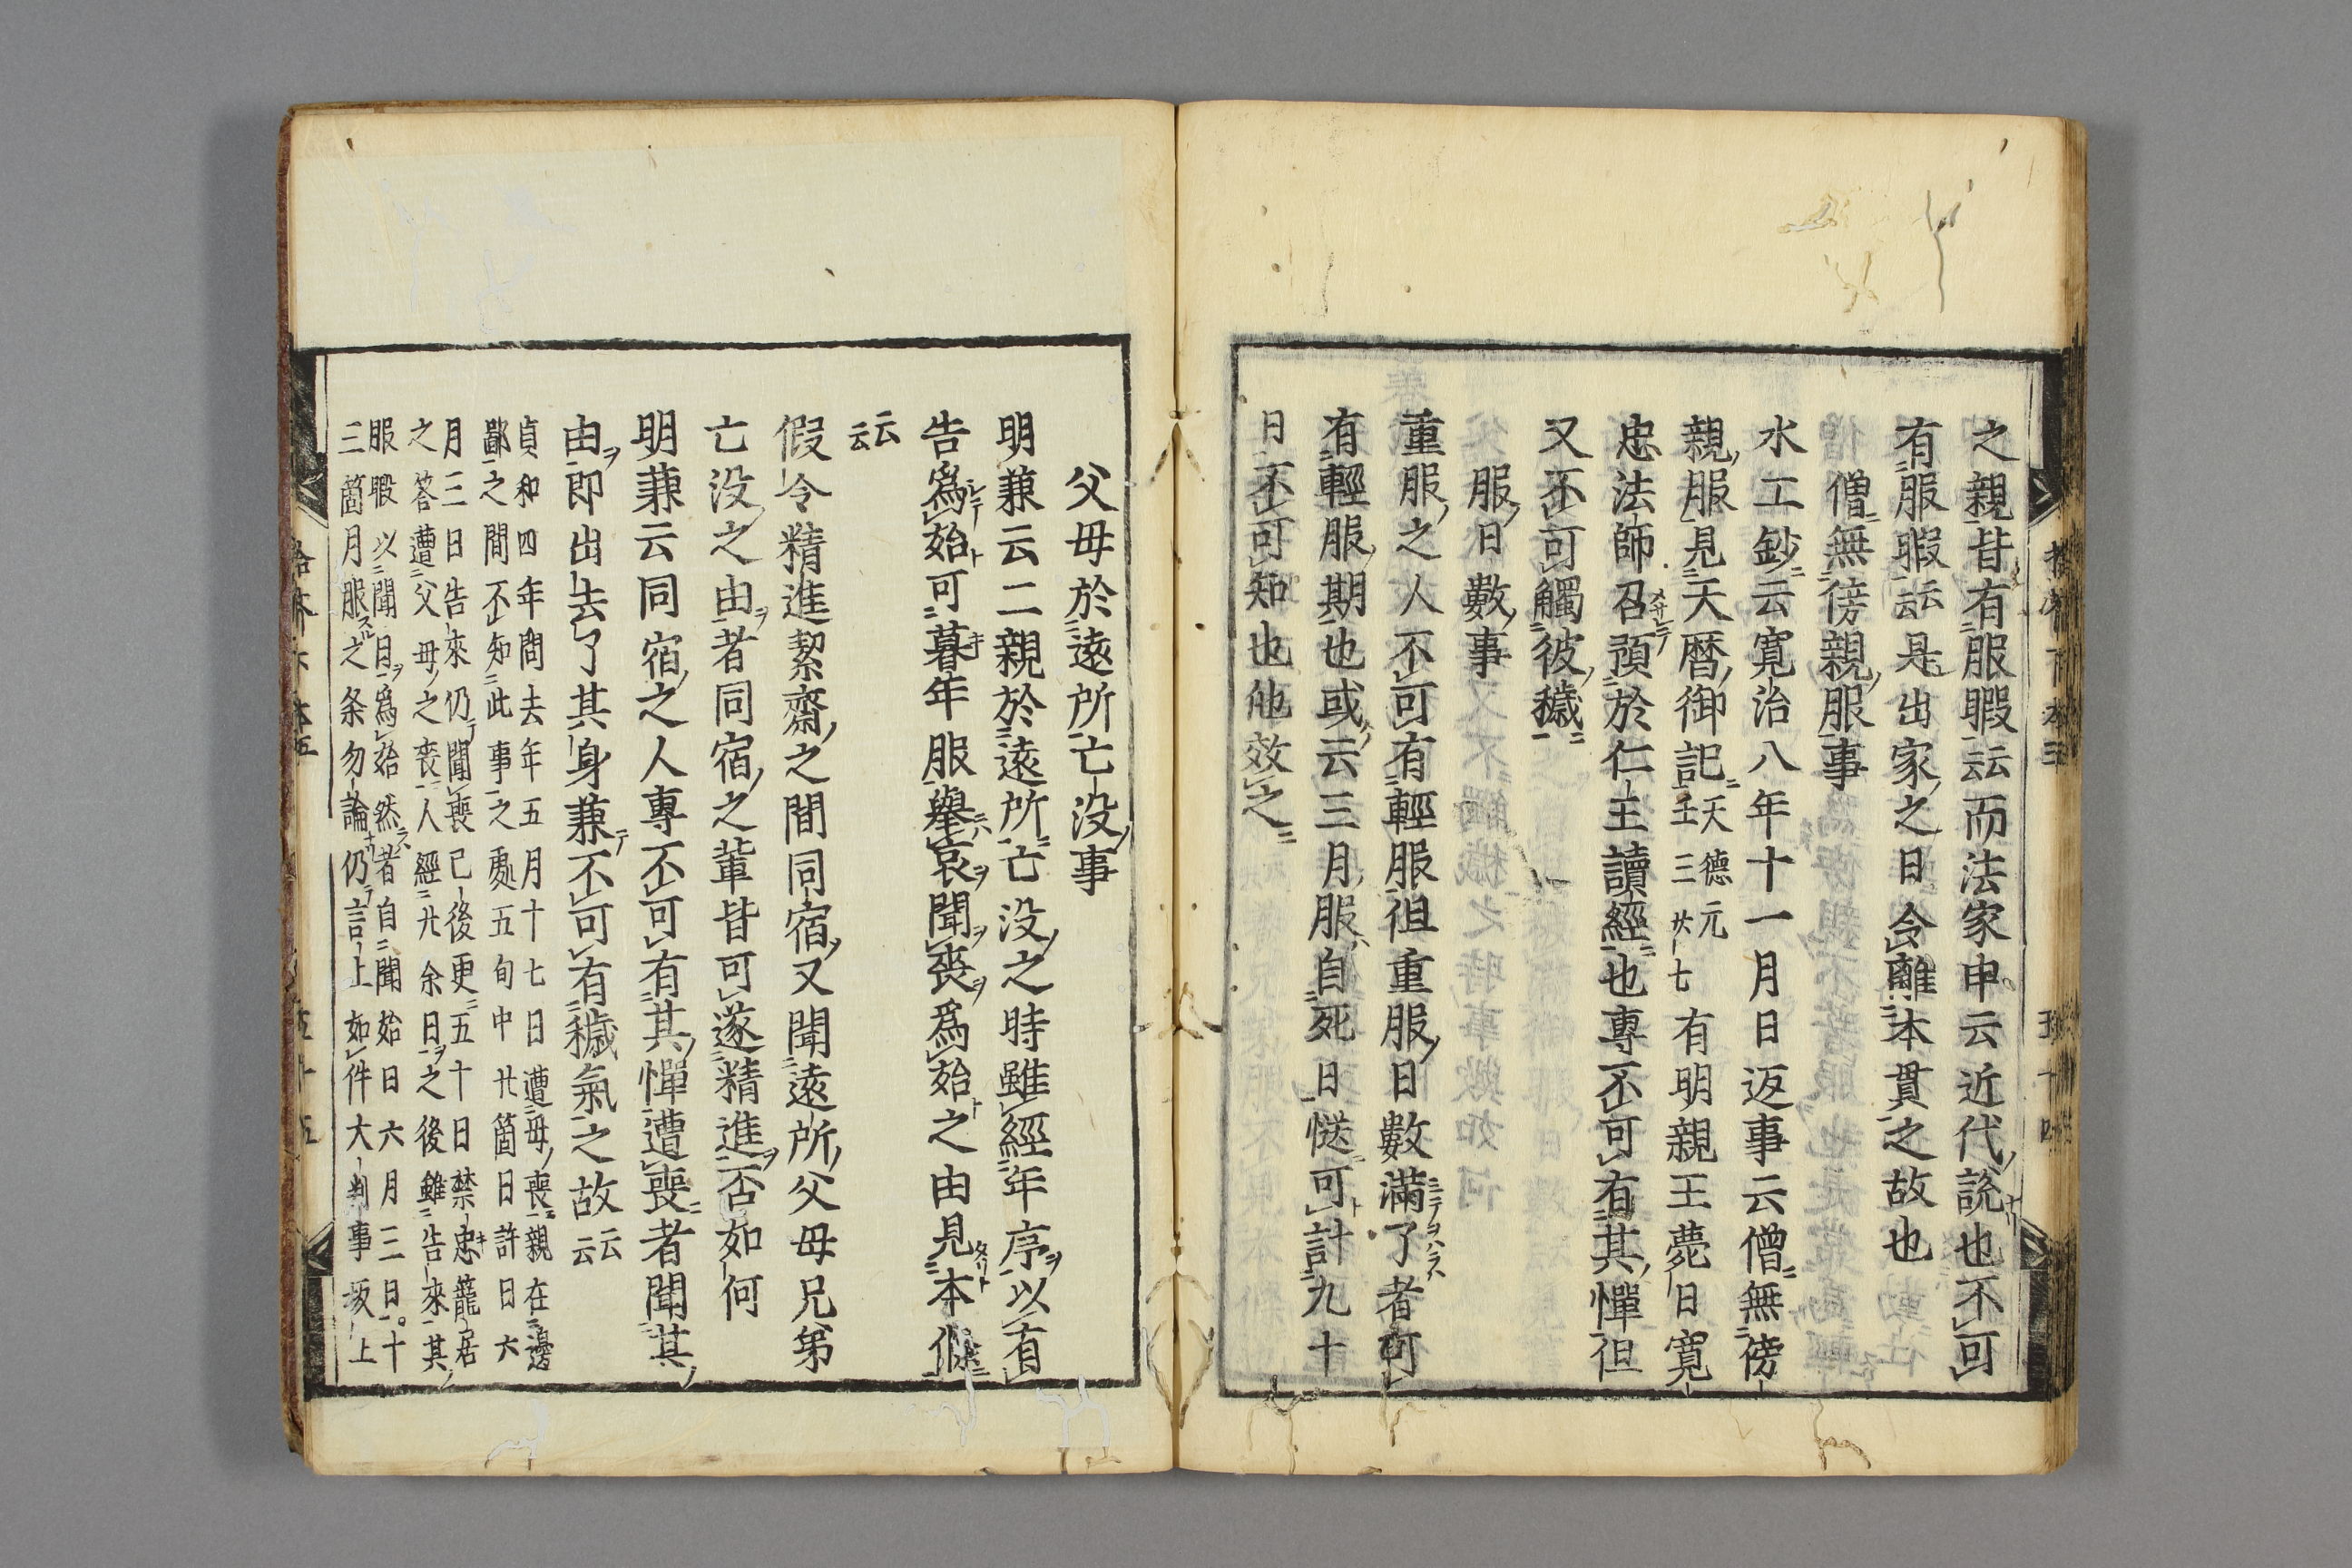 之親皆有服暇云云而法家申云近代説也不可
有服暇云云是出家之日令離本貫之故也
僧無傍親服事
水工鈔云寛治八年十一月日返事云僧無傍
親服見天暦御記天德元
壬三廿七有明親王薨日寛
忠法師召預於仁王讀經也專不可有其憚但
又不可觸彼穢
服日數事
重服之人不可有輕服徂重服日數滿了者可
有輕服期也或云三月服自死日慥可計九十
日不可知也他效之
父母於遠所亡没事
明兼云二親於遠所亡没之時雖經年序以有
告爲始可暮年服擧哀聞喪爲始之由見本條
云云
假令精進絜齋之間同宿又聞遠所父母兄弟
亡没之由者同宿之輩皆可遂精進否如何
明兼云同宿之人專不可有其憚遭喪者聞其
由即出去了其身兼不可有穢氣之故云云
貞和四年問去年五月十七日遭母喪親在邊
鄙之間不知此事之處五旬中廿箇日許日六
月三日告來仍聞喪已後更五十日禁忌籠居
之答遭父母之喪人經廿余日之後雖告來其
服暇以聞日爲始然者自聞始日六月三日十
三箇月服之条勿論仍言上如件大判事坂上